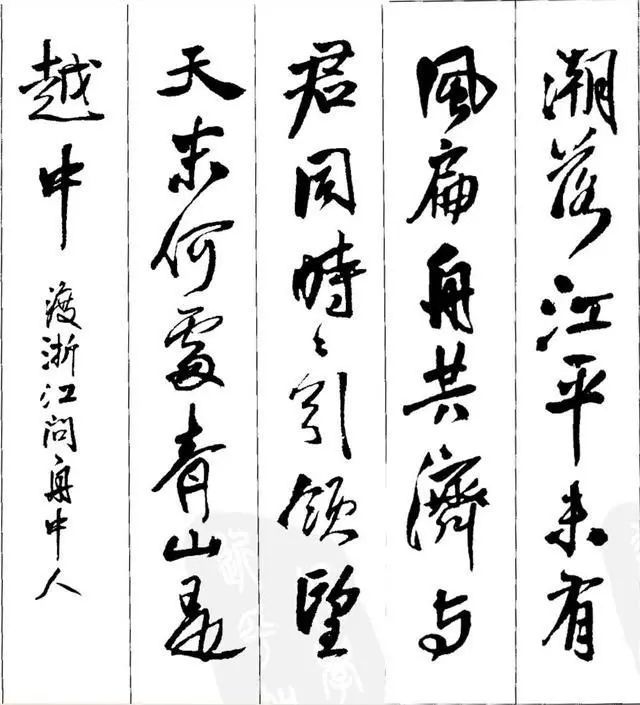 潮落江平未有
風扁舟共濟與
君同時〻引領望
天末何處青山是
越中
渡浙江問舟中人